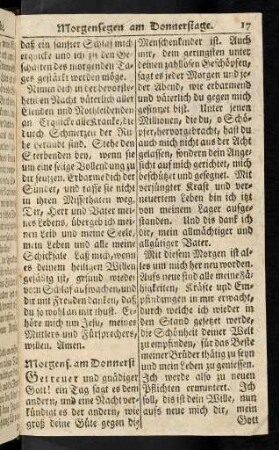 Morgensegen am Donnerstage. 17
daß ein sanfter Schlaf mich
erquicke und ich zu den Ge-
schäften des morgenden Ta-
ges gestärkt werden möge.
Nimm dich in der bevorste-
henden Nacht väterlich aller
Elenden und Nothleidenden
an. Erquicke alle Kranke, die
durch Schmerzen der Ru-
he beraubt sind. Stehe den
Sterbenden bey, wenn sie
um eine selige Vollendung zu
dir seufzen. Erbarme dich der
Sünder, und raffe sie nicht
in ihren Missethaten weg.
Dir, Herr und Vater mei-
nes Lebens, übergeb ich mei-
nen Leib und meine Seele,
mein Leben und alle meine
Schicksale. Laß mich, wenn
es deinem heiligen Willen
gefällig ist, gesund wieder
vom Schlaf aufwachen, und
dir mit Freuden danken, daß
du so wohl an mir thust. Er-
höre mich um Jesu, meines
Mittlers und Fürsprechers,
willen. Amen.
Morgens. am Donnerst
Getreuer und gnädiger
Gott! ein Tag sagt es
dem andern, und eine Nacht ver-
kündigt es der andern, wie
groß deine Güte gegen die
Menschenkinder ist. Auch
mir, dem geringsten unter
deinen zahllosen Geschöpfen,
sagt es jeder Morgen und je-
der Abend, wie erbarmend
und väterlich du gegen mich
gesinnt bist. Unter jenen
Millionen, die du, o Schö-
pfer, hervorgebracht, hast du
auch mich nicht aus der Acht
gelassen, sondern dein Auge
auch auf mich gerichtet, mich
beschützt und gesegnet. Mit
verjüngter Kraft und ver-
neuertem Leben bin ich itzt
von meinem Lager aufge-
standen. Und das dank ich
dir, mein allmächtiger und
allgütiger Vater.
Mit diesem Morgen ist al-
les um mich her neu worden.
Aufs neue sind alle meine Fä-
higkeiten, Kräfte und Em-
pfindungen in mir erwacht,
durch welche ich wieder in
den Stand gesetzt werde,
die Schönheit deiner Welt
zu empfinden, für das Beste
meiner Brüder thätig zu seyn
und mein Leben zu geniessen.
Ich werde also zu neuen
Pflichten ermuntert. Ich
soll, dis ist dein Wille, mich
aufs neue mir dir, mein
Gott